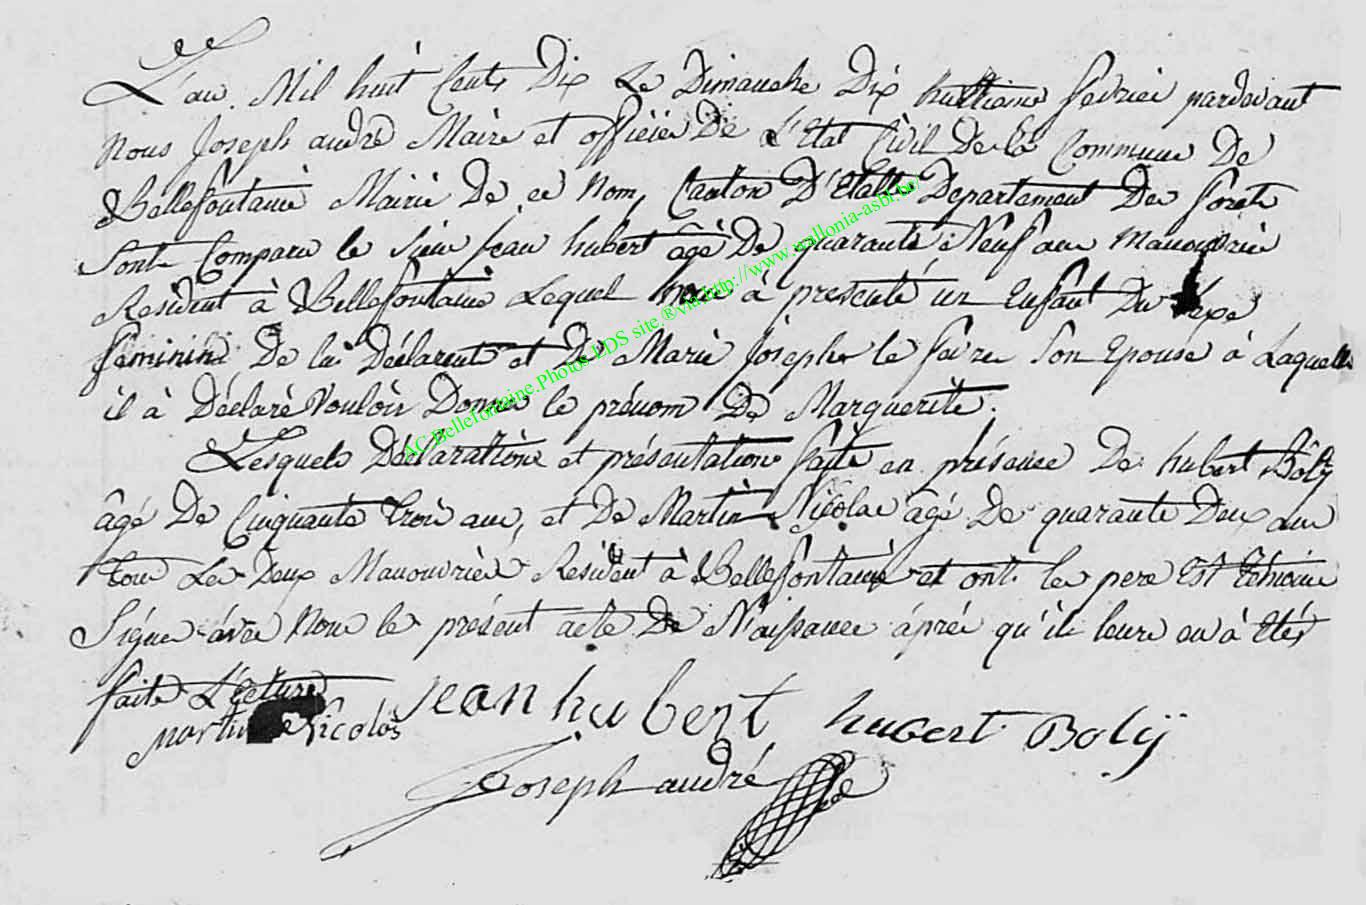 L'an Mil huit Cents Dix Le Dimanche Dix huitieme fevrier pardevant
nous Joseph andré Maire et officiér De L'Etat Civil De la Commune De
Bellefontaine Mairie De ce Nom, Canton D'Etalle Departement Des forets
Sont Comparu le Sieur jean hubert âgé De quarante Neuf ans Manouvrier
Resident à Bellefontaine Lequel nous à presenté un Enfant Du Sexe
féminin De lui Déclarant et De Marie Joseph le faire Son Epouse à Laquelle
il à Déclaré Vouloir Donner le prénom De Marguerite.
Lesquels Déclaration et présentation faite en présence De hubert Bôlÿ
âgé De Cinquante trois ans, et De Martin Nicolas âgé De quarante Deux ans
tous Les Deux Manouvrier Résident à Bellefontaine et ont les pere Est témoins
Signer avec Nous le présent acte De Naissance áprés qu'il leurs en à Etés
faite L'Ecture
martin Nicolas jean hubert hubert Bolÿ
Joseph andré
AC Bellefontaine.Photos LDS site ®via http://www.wallonia-asbl.be/